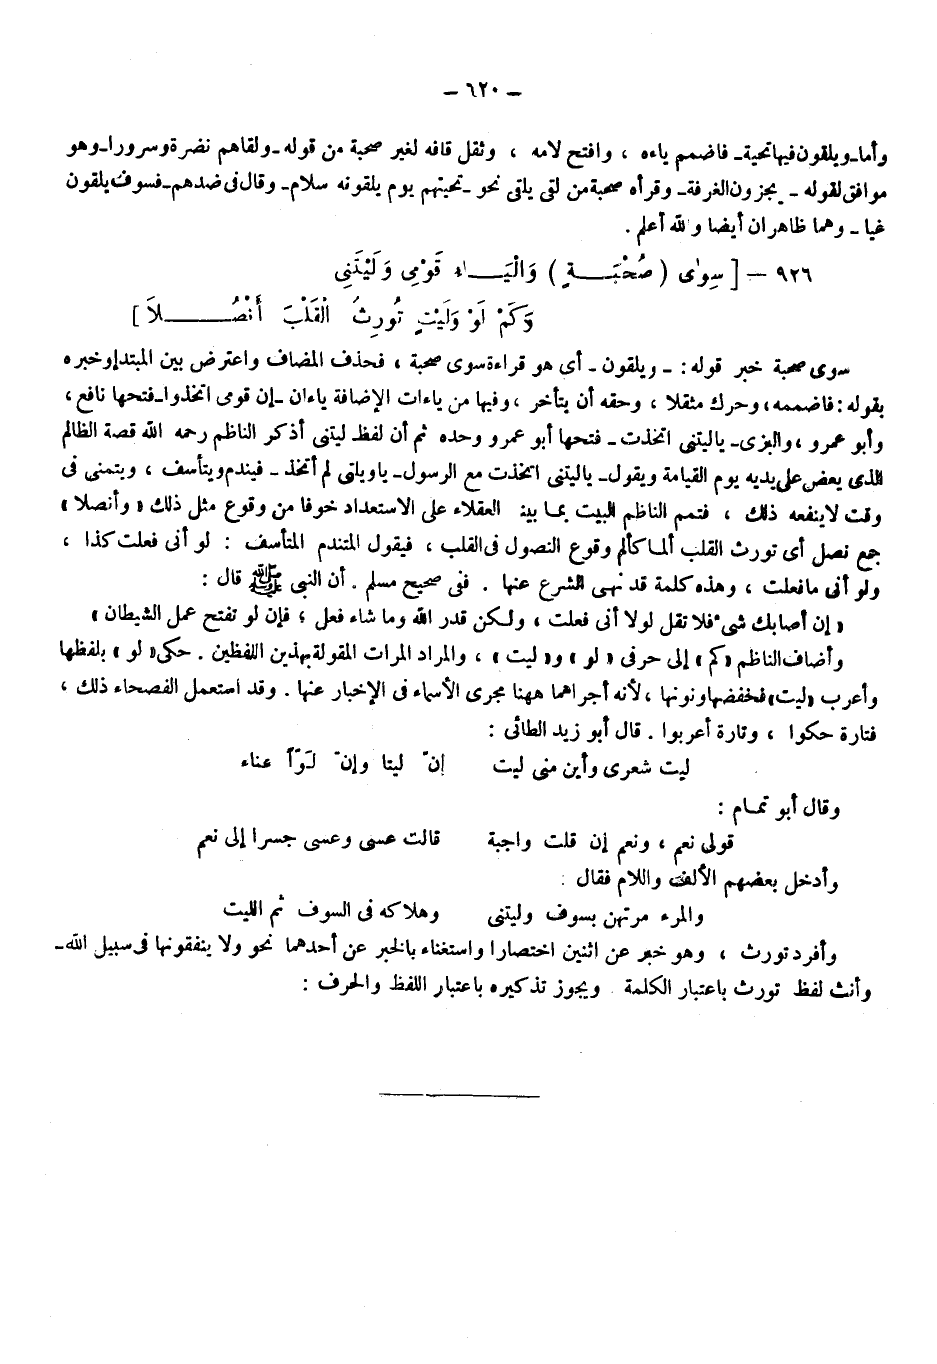 – ٦٢٠ –
وأما ـ ويلقون فيها تحية ـ فاضمم ياءه ، وافتح لامه ، وثقل قافه لغير صحبة من قوله ـ ولقاهم نضرة وسرورا ـ وهو
موافق لقوله ـ يجزون الغرفة ـ وقرأه صحبة من لقى يلقى نحو ـ تحيتهم يوم يلقونه سلام ـ وقال فى ضدهم ـ فسوف يلقون
غيا ـ وهما ظاهران أيضا والله أعلم .
٩٢٦ – [ سِوٰى ( صُحْبَـــةٍ ) وَالْيَـــاء قَوْمِى وَلَيْتَنِى
وَكَمْ لَوْ وَلَيْتٍ تُورِثُ الْقَلْبَ أَنْصُـــلَا ]
سوى صحبة خبر قوله : ـ ويلقون ـ أى هو قراءة سوى صحبة ، فحذف المضاف واعترض بين المبتدإ وخبره
بقوله : فاضممه ، وحرك مثقلا ، وحقه أن يتأخر ، وفيها من ياءات الإضافة ياءان ـ إن قومى اتخذوا ـ فتحها نافع ،
وأبو عمرو ، والبزى ـ ياليتنى اتخذت ـ فتحها أبو عمرو وحده ثم أن لفظ ليتنى أذكر الناظم رحمه الله قصة الظالم
الذى يعض على يديه يوم القيامة ويقول ـ ياليتنى اتخذت مع الرسول ـ ياويلتى لم أتخذ ـ فيندم ويتأسف ، ويتمنى فى
وقت لاينفعه ذلك ، فتمم الناظم البيت بما ينبه العقلاء على الاستعداد خوفا من وقوع مثل ذلك « وأنصلا »
جمع نصل أى تورث القلب ألما كألم وقوع النصول فى القلب ، فيقول المتندم المتأسف : لو أنى فعلت كذا ،
ولو أنى مافعلت ، وهذه كلمة قد نهى الشرع عنها . فى صحيح مسلم . أن النبى ﷺ قال :
« إن أصابك شىء فلا تقل لولا أنى فعلت ، ولكن قدر الله وما شاء فعل ؛ فإن لو تفتح عمل الشيطان »
وأضاف الناظم « كم » إلى حرفى « لو » و « ليت » ، والمراد المرات المقولة بهذين اللفظين . حكى « لو » بلفظها
وأعرب « ليت » فخفضها ونونها ، لأنه أجراهما ههنا مجرى الأسماء فى الإخبار عنها . وقد استعمل الفصحاء ذلك ،
فتارة حكوا ، وتارة أعربوا . قال أبو زيد الطائى :
ليت شعرى وأين منى ليت إنّ ليتا وإنّ لوّاً عناء
وقال أبو تمام :
قولى نعم ، ونعم إن قلت واجبة قالت عسى وعسى جسرا إلى نعم
وأدخل بعضهم الألف واللام فقال :
والمرء مرتهن بسوف وليتنى وهلاكه فى السوف ثم الليت
وأفرد تورث ، وهو خبر عن اثنين اختصارا واستغناء بالخبر عن أحدهما نحو ولا ينفقونها فى سبيل الله ـ
وأنث لفظ تورث باعتبار الكلمة ويجوز تذكيره باعتبار اللفظ والحرف :